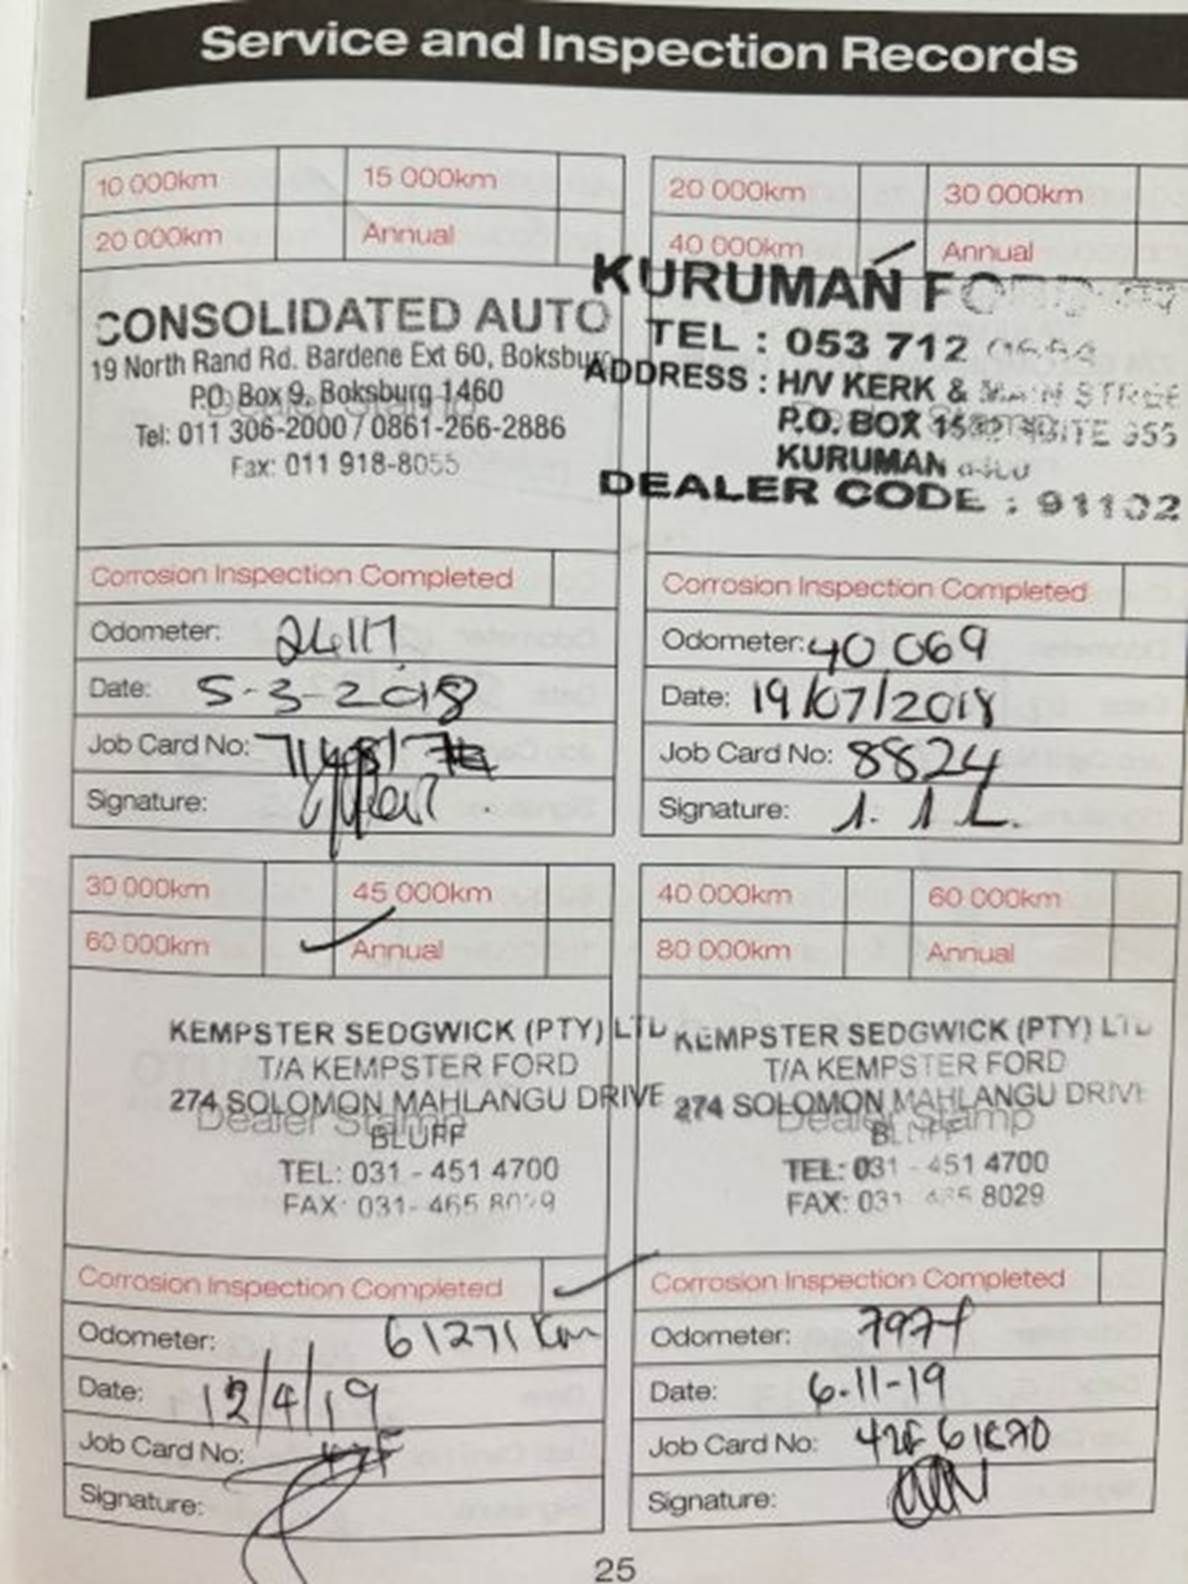 Service and Inspection Records
10 000km 15 000km
20 000km Annual
CONSOLIDATED AUTO
19 North Rand Rd. Bardene Ext 60, Boksburg
P.O. Box 9, Boksburg 1460
Dealer Stamp
Tel: 011 306-2000 / 0861-266-2886
Fax: 011 918-8055
Corrosion Inspection Completed
Odometer:
Date: 5-3-2018
Job Card No:
Signature:
20 000km 30 000km
40 000km Annual
KURUMAN FORD
TEL : 053 712
ADDRESS : H/V KERK & MAIN STREE
Dealer Stamp
P.O. BOX
KURUMAN
DEALER CODE : 91102
Corrosion Inspection Completed
Odometer: 40 069
Date: 19/07/2018
Job Card No: 8824
Signature:
30 000km 45 000km
60 000km Annual
KEMPSTER SEDGWICK (PTY) LTD
T/A KEMPSTER FORD
274 SOLOMON MAHLANGU DRIVE
Dealer Stamp
BLUFF
TEL: 031 - 451 4700
FAX: 031- 465 8029
Corrosion Inspection Completed
Odometer: 61271 Km
Date: 12/4/19
Job Card No:
Signature:
40 000km 60 000km
80 000km Annual
KEMPSTER SEDGWICK (PTY) LTD
T/A KEMPSTER FORD
274 SOLOMON MAHLANGU DRIVE
Dealer Stamp
BLUFF
TEL: 031 - 451 4700
FAX: 031 8029
Corrosion Inspection Completed
Odometer:
Date: 6-11-19
Job Card No:
Signature:
25